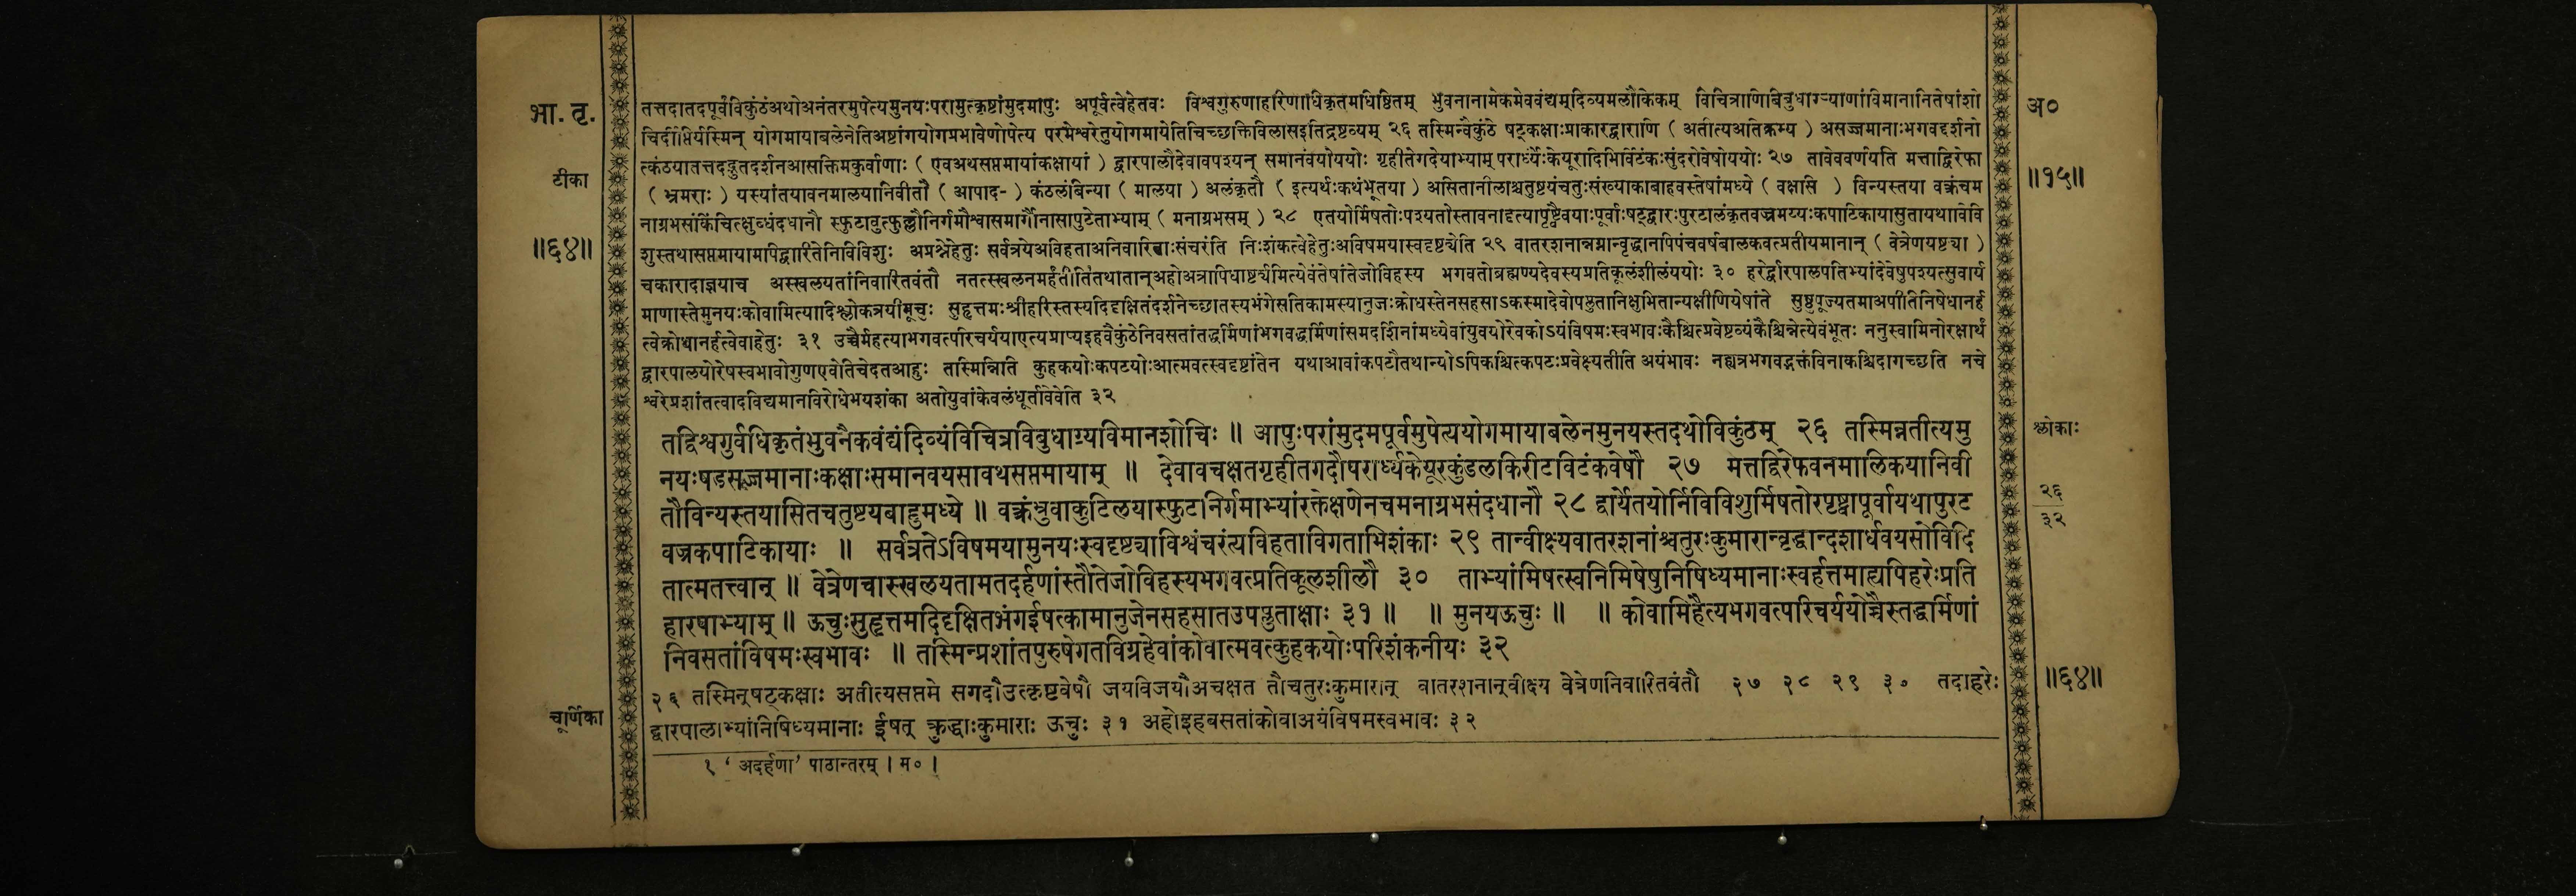 भा. तृ.
टीका
॥६४॥
तत्तदातदपूर्वंविकुंठंअथोअनंतरमुपेत्यमुनयःपरामुत्कृष्टांमुदमापुः अपूर्वत्वेहेतवः विश्वगुरुणाहरिणाधिकृतमधिष्ठितम् भुवनानामेकमेववंद्यम्दिव्यमलौकिकम् विचित्राणिबिबुधाग्र्याणांविमानानितेषांशो
चिर्दीप्तिर्यस्मिन् योगमायाबलेनेतिअष्टांगयोगप्रभावेणोपेत्य परमेश्वरेतुयोगमायेतिचिच्छक्तिविलासइतिद्रष्टव्यम् २६ तस्मिन्वैकुंठे षट्कक्षाःप्राकारद्वाराणि ( अतीत्यअतिक्रम्य ) असज्जमानाःभगवद्दर्शनो
त्कंठयातत्तदद्भुतदर्शनआसक्तिमकुर्वाणाः ( एवअथसप्तमायांकक्षायां ) द्वारपालौदेवावपश्यन् समानंवयोययोः गृहीतेगदेयाभ्याम् परार्ध्यैःकेयूरादिभिर्विटंकःसुंदरोवेषोययोः २७ तावेववर्णयति मत्ताद्विरेफा
( भ्रमराः ) यस्यांतयावनमालयानिवीतौ ( आपाद- ) कंठलंबिन्या ( मालया ) अलंकृतौ ( इत्यर्थःकथंभूतया ) असितानीलाश्चतुष्टयंचतुःसंख्याकाबाहवस्तेषांमध्ये ( वक्षसि ) विन्यस्तया वक्रंचम
नाग्रभसांकिंचित्क्षुब्धंदधानौ स्फुटावुत्फुल्लौनिर्गमौश्वासमार्गौनासापुटेताभ्याम् ( मनाग्रभसम् ) २८ एतयोर्मिषतोःपश्यतोस्तावनादृत्यापृष्ट्वैवयाःपूर्वाःषट्द्वारःपुरटालंकृतवज्रमय्यःकपाटिकायासुतायथाविवि
शुस्तथासप्तमायामपिद्वारितेनिविविशुः अप्रश्नेहेतुः सर्वत्रयेअविहताअनिवारिताःसंचरंति निःशंकत्वेहेतुःअविषमयास्वदृष्ट्येति २९ वातरशनान्नग्नान्वृद्धानपिपंचवर्षबालकवत्प्रतीयमानान् ( वेत्रेणयष्ट्या )
चकारादाज्ञयाच अस्खलयतांनिवारितवंतौ नतत्स्खलनमर्हंतीतितथातान्अहोअत्रापिधाष्टर्यमित्येवंतेषांतेजोविहस्य भगवतोब्रह्मण्यदेवस्यप्रतिकूलंशीलंययोः ३० हरेर्द्वारपालपतिभ्यांदेवेषुपश्यत्सुवार्य
माणास्तेमुनयःकोवामित्यादिश्लोकत्रयीमूचुः सुहृत्तमःश्रीहरिस्तस्यदिदृक्षितंदर्शनेच्छातस्यभंगेसतिकामस्यानुजःक्रोधस्तेनसहसाऽकस्मादेवोपप्लुतानिक्षुभितान्यक्षीणियेषांते सुष्ठुपूज्यतमाअपीतिनिषेधानर्ह
त्वेक्रोधानर्हत्वेवाहेतुः ३१ उच्चैर्महत्याभगवत्परिचर्ययाएत्यप्राप्यइहवैकुंठेनिवसतांतद्धर्मिणांभगवद्धर्मिणांसमदर्शिनांमध्येवांयुवयोरेवकोऽयंविषमःस्वभावःकैश्चित्प्रवेष्टव्यंकैश्चिन्नेत्येवंभूतः ननुस्वामिनोरक्षार्थं
द्वारपालयोरेषस्वभावोगुणएवेतिचेदतआहुः तस्मिन्निति कुहकयोःकपटयोःआत्मवत्स्वदृष्टांतेन यथाआवांकपटौतथान्योऽपिकश्चित्कपटःप्रवेक्ष्यतीति अयंभावः नह्यत्रभगवद्भक्तंविनाकश्चिदागच्छति नचे
श्वरेप्रशांतत्वादविद्यमानविरोधेभयशंका अतोयुवांकेवलंधूर्तावेवेति ३२
तद्विश्वगुर्वधिकृतंभुवनैकवंद्यंदिव्यंविचित्रविबुधाग्र्यविमानशोचिः ॥ आपुःपरांमुदमपूर्वमुपेत्ययोगमायाबलेनमुनयस्तदथोविकुंठम् २६ तस्मिन्नतीत्यमु
नयःषडसज्जमानाःकक्षाःसमानवयसावथसप्तमायाम् ॥ देवावचक्षतगृहीतगदौपरार्ध्यकेयूरकुंडलकिरीटविटंकवेषौ २७ मत्तद्विरेफवनमालिकयानिवी
तौविन्यस्तयासितचतुष्टयबाहुमध्ये ॥ वक्रंभ्रुवाकुटिलयास्फुटनिर्गमाभ्यांरक्तेक्षणेनचमनाग्रभसंदधानौ २८ द्वार्येतयोर्निविविशुर्मिषतोरपृष्ट्वापूर्वायथापुरट
वज्रकपाटिकायाः ॥ सर्वत्रतेऽविषमयामुनयःस्वदृष्ट्याविश्वंचरंत्यविहताविगताभिशंकाः २९ तान्वीक्ष्यवातरशनांश्चतुरःकुमारान्वृद्धान्दशार्धवयसोविदि
तात्मतत्त्वान् ॥ वेत्रेणचास्खलयतामतदर्हणांस्तौतेजोविहस्यभगवत्प्रतिकूलशीलौ ३० ताभ्यांमिषत्स्वनिमिषेषुनिषिध्यमानाःस्वर्हत्तमाह्यपिहरेःप्रति
हारपाभ्याम् ॥ ऊचुःसुहृत्तमदिदृक्षितभंगईषत्कामानुजेनसहसातउपप्लुताक्षाः ३१ ॥ ॥ मुनयऊचुः ॥ ॥ कोवामिहैत्यभगवत्परिचर्ययोच्चैस्तद्धर्मिणां
निवसतांविषमःस्वभावः ॥ तस्मिन्प्रशांतपुरुषेगतविग्रहेवांकोवात्मवत्कुहकयोःपरिशंकनीयः ३२
चूर्णिका
२६ तस्मिन्षट्कक्षाः अतीत्यसप्तमे सगदौउत्कृष्टवेषौ जयविजयौअचक्षत तौचतुरःकुमारान् वातरशनान्वीक्ष्य वेत्रेणनिवारितवंतौ २७ २८ २९ ३० तदाहरेः
द्वारपालाभ्यांनिषिध्यमानाः ईषत् क्रुद्धाःकुमाराः ऊचुः ३१ अहोइहबसतांकोवाअयंविषमस्वभावः ३२
१ ‘ अदर्हणा’ पाठान्तरम् । म० ।
अ०
॥१५॥
श्लोकाः
२६
३२
॥६४॥